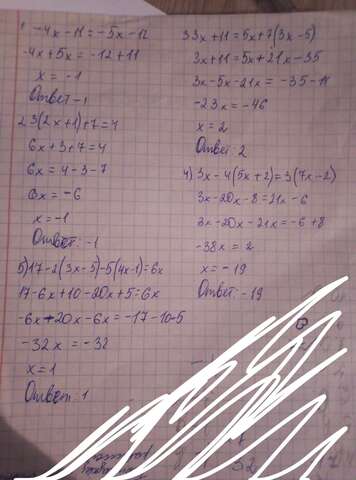 1) -4x-11=-5x-12
-4x+5x=-12+11
x=-1
Ответ -1
2 3(2x+1)+7=4
6x+3+7=4
6x=4-3-7
6x=-6
x=-1
Ответ: -1
5) 17-2(3x-5)-5(4x-1)=6x
17-6x+10-20x+5=6x
-6x-20x-6x=-17-10-5
-32x=-32
x=1
Ответ: 1
3 3x+11=5x+7(3x-5)
3x+11=5x+21x-35
3x-5x-21x=-35-11
-23x=-46
x=2
Ответ: 2
4) 3x-4(5x+2)=3(7x-2)
3x-20x-8=21x-6
3x-20x-21x=-6+8
-38x=2
x=-19
Ответ: -19